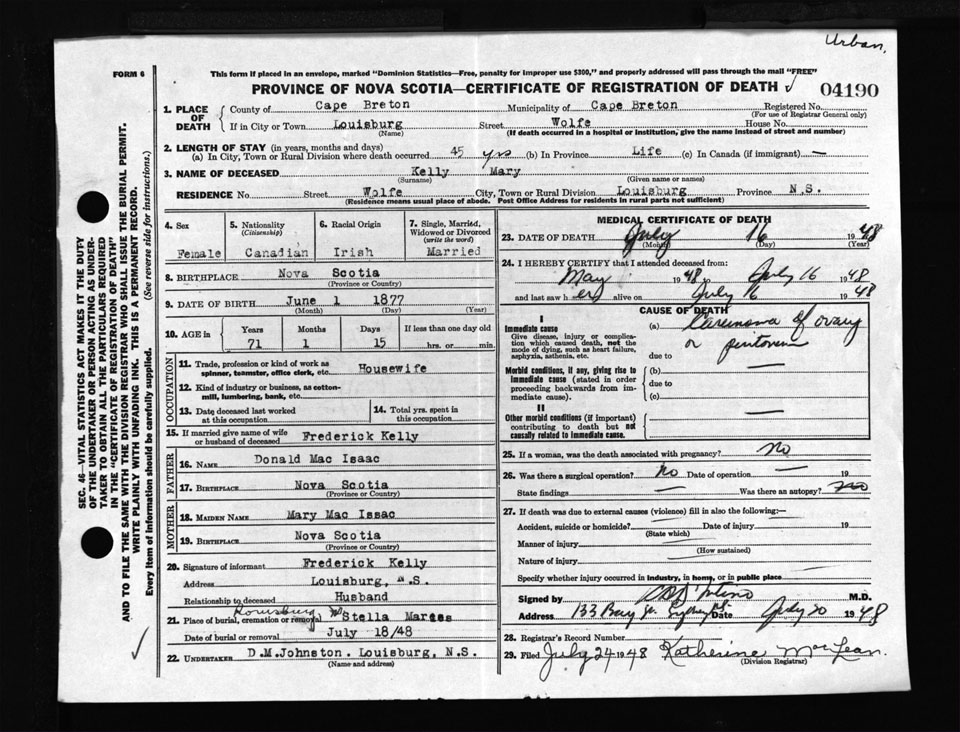 Urban.
FORM 6
This form if placed in an envelope, marked "Dominion Statistics—Free, penalty for improper use $300," and properly addressed will pass through the mail "FREE"
PROVINCE OF NOVA SCOTIA—CERTIFICATE OF REGISTRATION OF DEATH √ 04190
1. PLACE OF DEATH County of Cape Breton Municipality of Cape Breton Registered No.
(For use of Registrar General only)
If in City or Town Louisburg Street Wolfe House No.
(Name) (If death occurred in a hospital or institution, give the name instead of street and number)
2. LENGTH OF STAY (in years, months and days)
(a) In City, Town or Rural Division where death occurred 45 yrs (b) In Province Life (c) In Canada (if immigrant) —
3. NAME OF DECEASED Kelly Mary
(Surname) (Given name or names)
RESIDENCE No. Street Wolfe City, Town or Rural Division Louisburg Province N.S.
(Residence means usual place of abode. Post Office Address for residents in rural parts not sufficient)
4. Sex
Female
5. Nationality
(Citizenship)
Canadian
6. Racial Origin
Irish
7. Single, Married, Widowed or Divorced
(write the word)
Married
8. BIRTHPLACE Nova Scotia
(Province or Country)
9. DATE OF BIRTH June 1 1877
(Month) (Day) (Year)
10. AGE in Years Months Days If less than one day old
71 1 15 hrs. or min.
OCCUPATION
11. Trade, profession or kind of work as spinner, teamster, office clerk, etc. Housewife
12. Kind of industry or business, as cotton-mill, lumbering, bank, etc.
13. Date deceased last worked at this occupation
14. Total yrs. spent in this occupation
15. If married give name of wife or husband of deceased Frederick Kelly
FATHER
16. NAME Donald Mac Isaac
17. BIRTHPLACE Nova Scotia
(Province or Country)
MOTHER
18. MAIDEN NAME Mary Mac Issac
19. BIRTHPLACE Nova Scotia
(Province or Country)
20. Signature of informant Frederick Kelly
Address Louisburg, N.S.
Relationship to deceased Husband
21. Place of burial, cremation or removal Louisburg Stella Mares
Date of burial or removal July 18/48
22. UNDERTAKER D.M.Johnston. Louisburg, N.S.
(Name and address)
MEDICAL CERTIFICATE OF DEATH
23. DATE OF DEATH July 16 1948
(Month) (Day) (Year)
24. I HEREBY CERTIFY that I attended deceased from:
May 1948 to July 16 1948
and last saw her alive on July 16 1948
CAUSE OF DEATH
I
Immediate cause
Give disease, injury or complication which caused death, not the mode of dying, such as heart failure, asphyxia, asthenia, etc.
(a) Carcinoma of ovary
or
due to
Morbid conditions, if any, giving rise to immediate cause (stated in order proceeding backwards from immediate cause).
(b) —
due to
(c)
II
Other morbid conditions (if important) contributing to death but not causally related to immediate cause. —
25. If a woman, was the death associated with pregnancy? no
26. Was there a surgical operation? no Date of operation — 19
State findings — Was there an autopsy? no
27. If death was due to external causes (violence) fill in also the following:—
Accident, suicide or homicide? Date of injury 19
(State which)
Manner of injury
(How sustained)
Nature of injury
Specify whether injury occurred in industry, in home, or in public place
Signed by M.D.
Address 133 Sydney Date July 20 1948
28. Registrar's Record Number
29. Filed July 24 1948 Katherine MacLean.
(Division Registrar)
SEC. 46—VITAL STATISTICS ACT MAKES IT THE DUTY
OF THE UNDERTAKER OR PERSON ACTING AS UNDER-
TAKER TO OBTAIN ALL THE PARTICULARS REQUIRED
IN THE "CERTIFICATE OF REGISTRATION OF DEATH"
AND TO FILE THE SAME WITH THE DIVISION REGISTRAR WHO SHALL ISSUE THE BURIAL PERMIT.
WRITE PLAINLY WITH UNFADING INK. THIS IS A PERMANENT RECORD.
Every item of information should be carefully supplied. (See reverse side for instructions.)